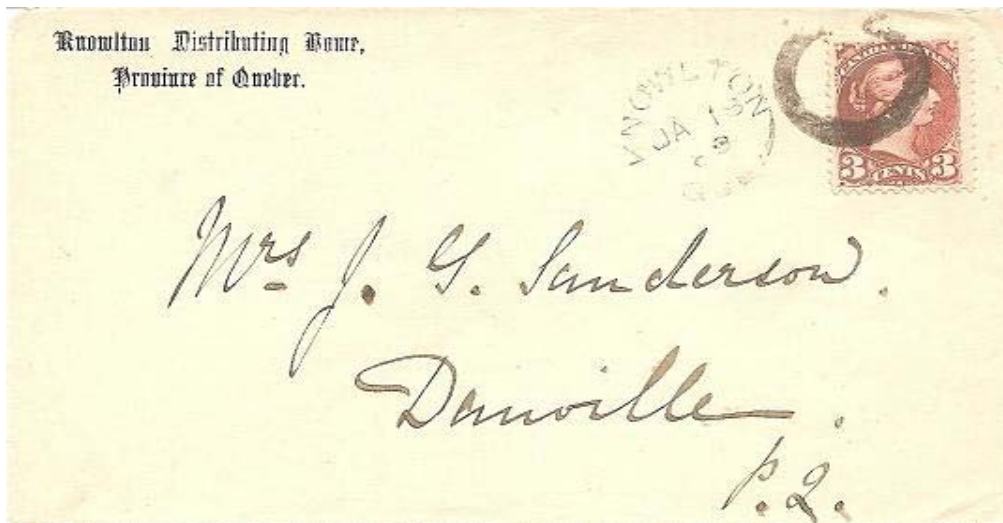 Knowlton Distributing Home,
Province of Quebec.
KNOWLTON
JA 18
CANADA POSTAGE
3 CENTS 3
Mrs J. G. Sanderson.
Danville.
P.Q.